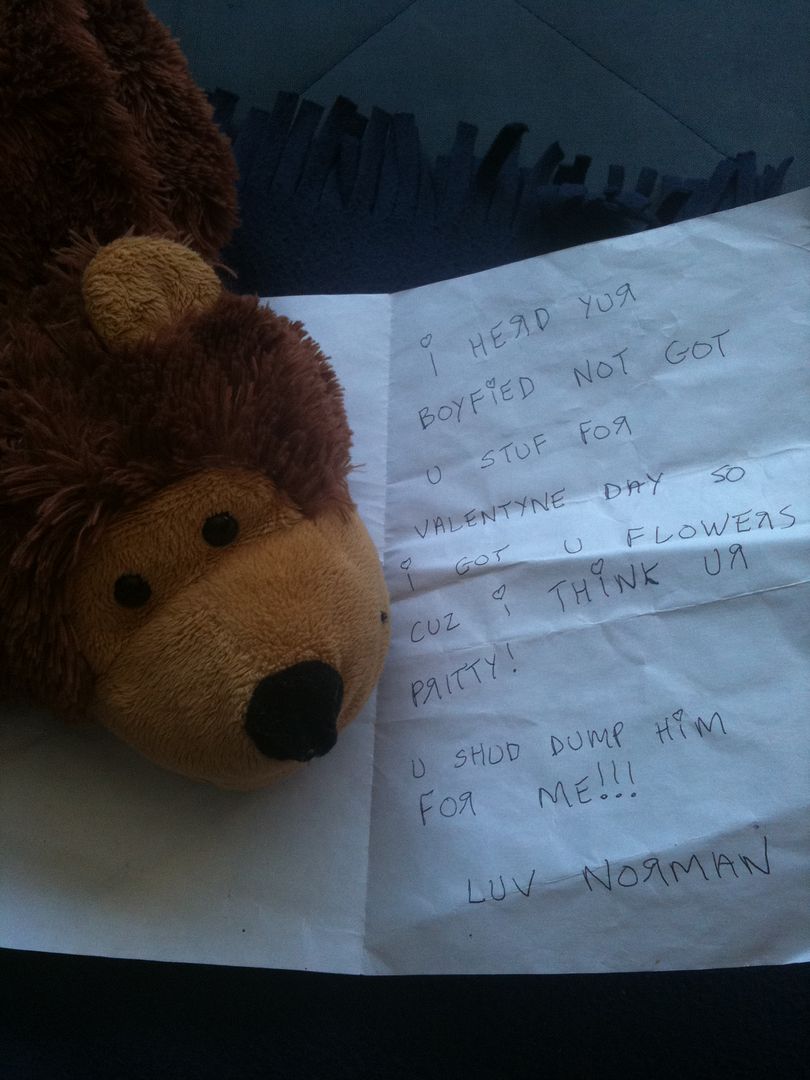 i HEЯD YUЯ
BOYFiED NOT GOT
U STUF FOЯ
VALENTYNE DAY SO
i GOT U FLOWEЯS
CUZ i THiNK UЯ
PЯITTY!
U SHUD DUMP HiM
FOЯ ME!!!
LUV NOЯMAN